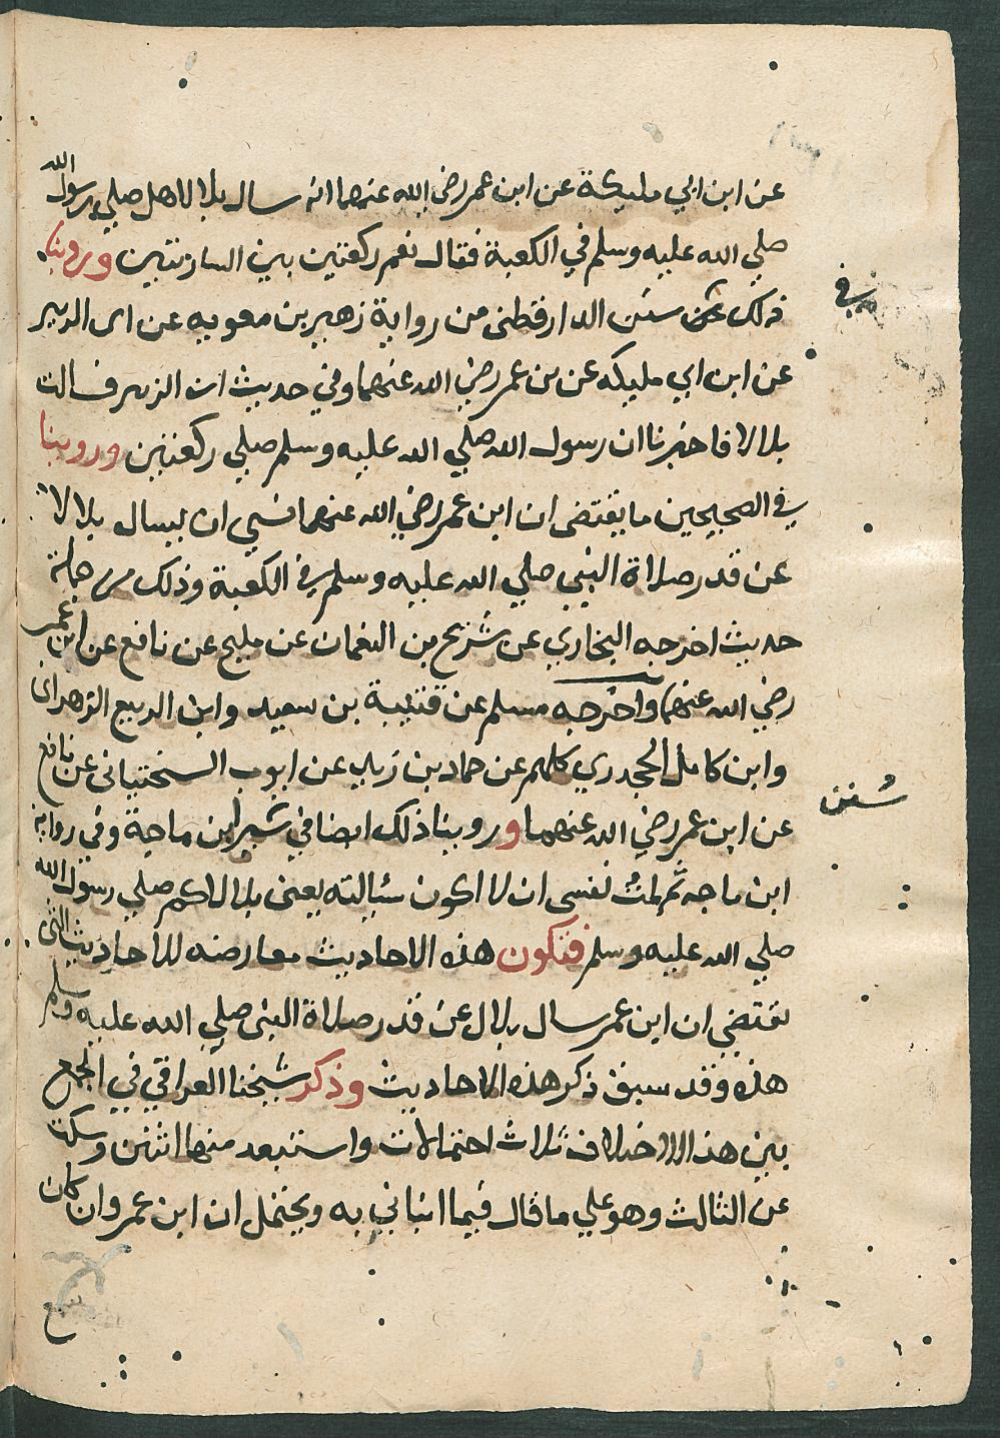 عن ابن ابي مليكة عن ابن عمر رضي الله عنهما انه سال بلالا هل صلي رسول الله
صلي الله عليه وسلم في الكعبة فقال نعم ركعتين بين الساريتين وروينا
ذلك في سنن الدارقطني من رواية زهير بن معويه عن ابي الزبير
عن ابن ابي مليكه عن بن عمر رضي الله عنهما وفي حديث ابن الزبير فسالت
بلالا فاخبرنا ان رسول الله صلي الله عليه وسلم صلي ركعتين وروينا
في الصحيحين ما يقتضى ان ابن عمر رضي الله عنهما نسي ان يسال بلالا
عن قدر صلاة النبي صلي الله عليه وسلم في الكعبة وذلك من جملة
حديث اخرجه البخاري عن شريح بن النعمان عن مليح عن نافع عن ابن عمر
رضي الله عنهما واخرجه مسلم عن قتيبة بن سعيد وابن الربيع الزهراني
وابن كامل الجحدري كلهم عن حماد بن زيد عن ايوب السختياني عن نافع
عن ابن عمر رضي الله عنهما وروينا ذلك ايضا في ابن ماجة وفي رواية
ابن ماجه ثم لمت نفسى ان لا اكون سئالته يعنى بلالا كم صلي رسول الله
صلي الله عليه وسلم فتكون هذه الاحاديث معارضه للاحاديث التى
تقتضي ان ابن عمر سال بلال عن قدر صلاة النبى صلي الله عليه وسلم
هذه وقد سبق ذكر هذه الاحاديث وذكر شيخنا العراقي في الجمع
بين هذا الاختلاف ثلاث احتمالات واستبعد منها اثنين وسكت
عن الثالث وهو علي ما قال فيما انباني به ويحتمل ان ابن عمر وان كان
في
سنن